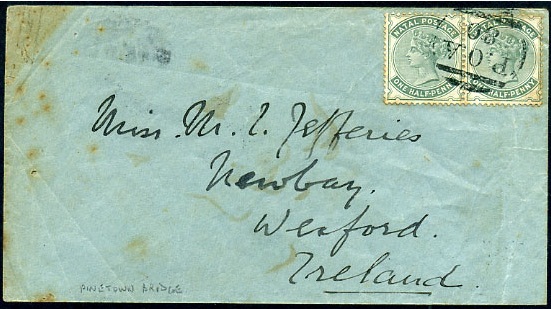 NATAL POSTAGE NATAL POSTAGE
ONE HALF-PENNY ONE HALF-PENNY
P.O.A.
89
Miss. M. L. Jefferies
Newbay.
Wexford.
Ireland.
PINETOWN BRIDGE